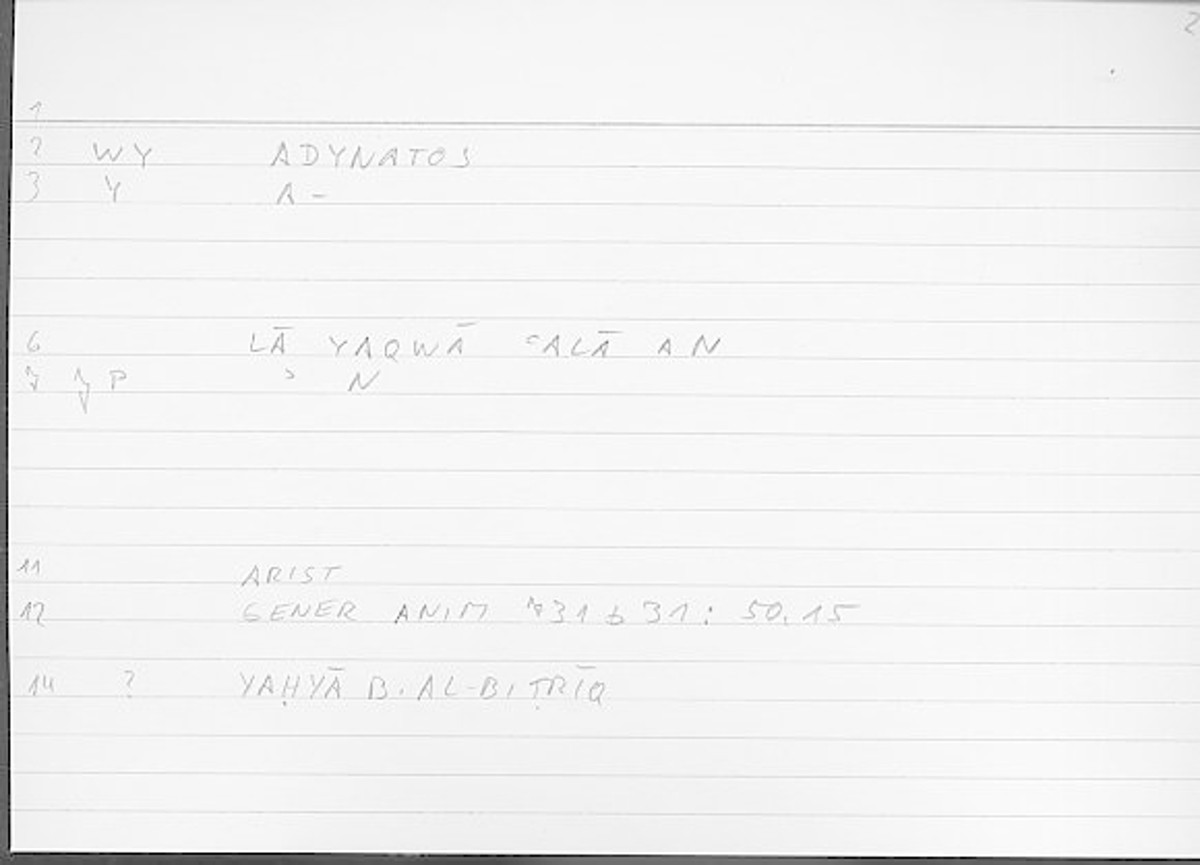 2
1
2 WY ADYNATOS
3 Y A-
6 LĀ YAQWĀ ʿALĀ AN
7 P ʾ N
11 ARIST
12 GENER ANIM 731 b 31: 50.15
14 ? YAḤYĀ B. AL-BIṬRĪQ